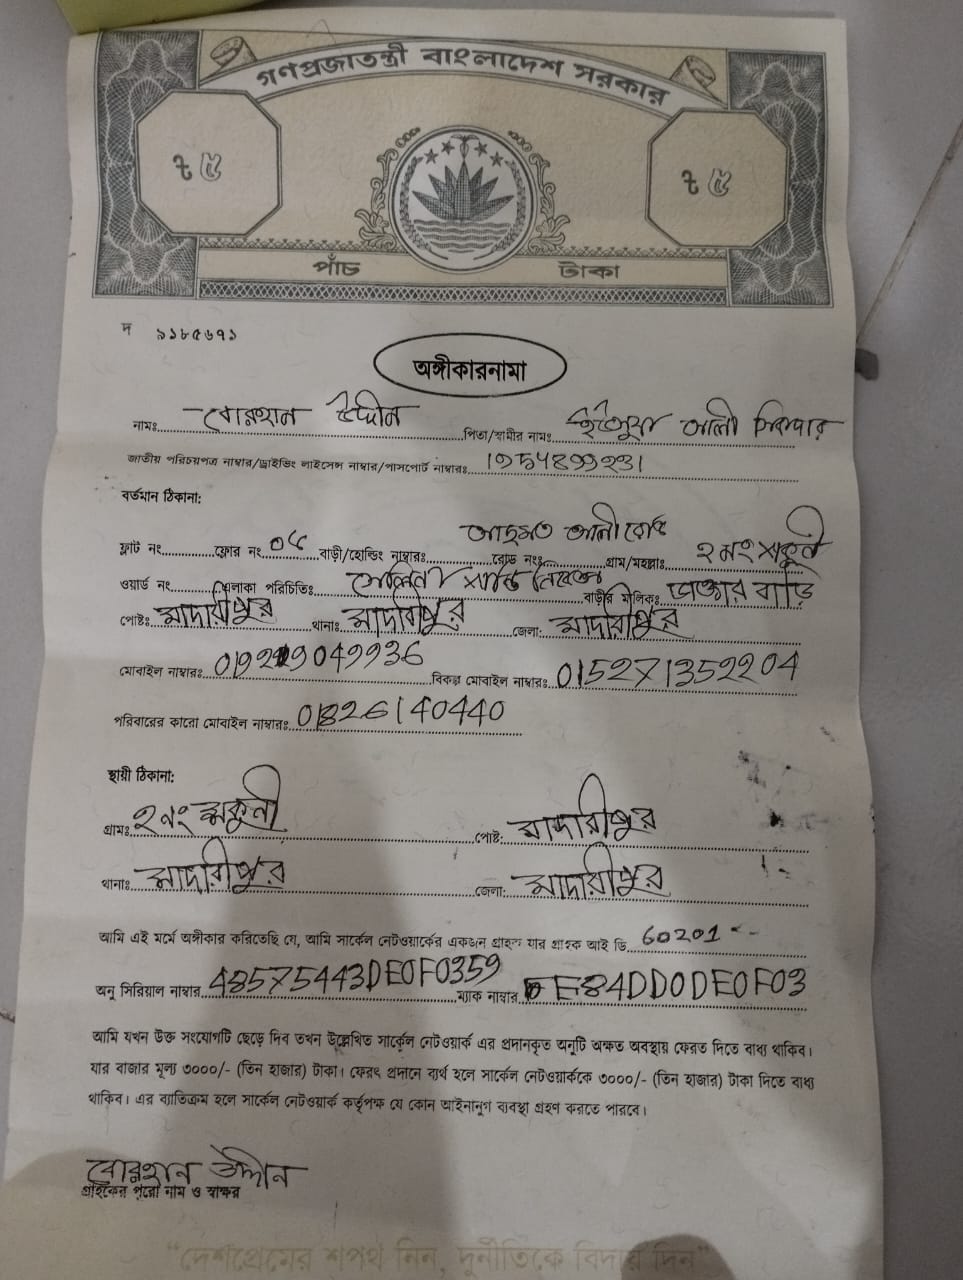 গণপ্রজাতন্ত্রী বাংলাদেশ সরকার
৳ ৫ ৳ ৫
পাঁচ টাকা
দ ৯১৮৫৬৭১
অঙ্গীকারনামা
নামঃ বোরহান উদ্দীন পিতা/স্বামীর নামঃ আলী
জাতীয় পরিচয়পত্র নাম্বার/ড্রাইভিং লাইসেন্স নাম্বার/পাসপোর্ট নাম্বারঃ
বর্তমান ঠিকানা:
ফ্লাট নং ফ্লোর নং বাড়ী/হোল্ডিং নাম্বারঃ আহমত আলী রোড রোড নংঃ গ্রাম/মহল্লাঃ ২নং শকুনী
ওয়ার্ড নং এলাকা পরিচিতিঃ বাড়ীর মালিকঃ ডাক্তার বাড়ি
পোষ্টঃ মাদারীপুর থানাঃ মাদারীপুর জেলা: মাদারীপুর
মোবাইল নাম্বারঃ বিকল্প মোবাইল নাম্বারঃ 015271352204
পরিবারের কারো মোবাইল নাম্বারঃ 01826140440
স্থায়ী ঠিকানা:
গ্রামঃ ২নং শকুনী পোষ্ট: মাদারীপুর
থানাঃ মাদারীপুর জেলা: মাদারীপুর
আমি এই মর্মে অঙ্গীকার করিতেছি যে, আমি সার্কেল নেটওয়ার্কের একজন গ্রাহক যার গ্রাহক আই ডি 60201
অনু সিরিয়াল নাম্বার 48575443DE0F0359 ম্যাক নাম্বার E84DD0DE0F03
আমি যখন উক্ত সংযোগটি ছেড়ে দিব তখন উল্লেখিত সার্কেল নেটওয়ার্ক এর প্রদানকৃত অনুটি অক্ষত অবস্থায় ফেরত দিতে বাধ্য থাকিব।
যার বাজার মূল্য ৩০০০/- (তিন হাজার) টাকা। ফেরৎ প্রদানে ব্যর্থ হলে সার্কেল নেটওয়ার্ককে ৩০০০/- (তিন হাজার) টাকা দিতে বাধ্য
থাকিব। এর ব্যতিক্রম হলে সার্কেল নেটওয়ার্ক কর্তৃপক্ষ যে কোন আইনানুগ ব্যবস্থা গ্রহণ করতে পারবে।
বোরহান উদ্দীন
গ্রাহকের পুরো নাম ও স্বাক্ষর
"দেশপ্রেমের শপথ নিন, দুর্নীতিকে বিদায় দিন"